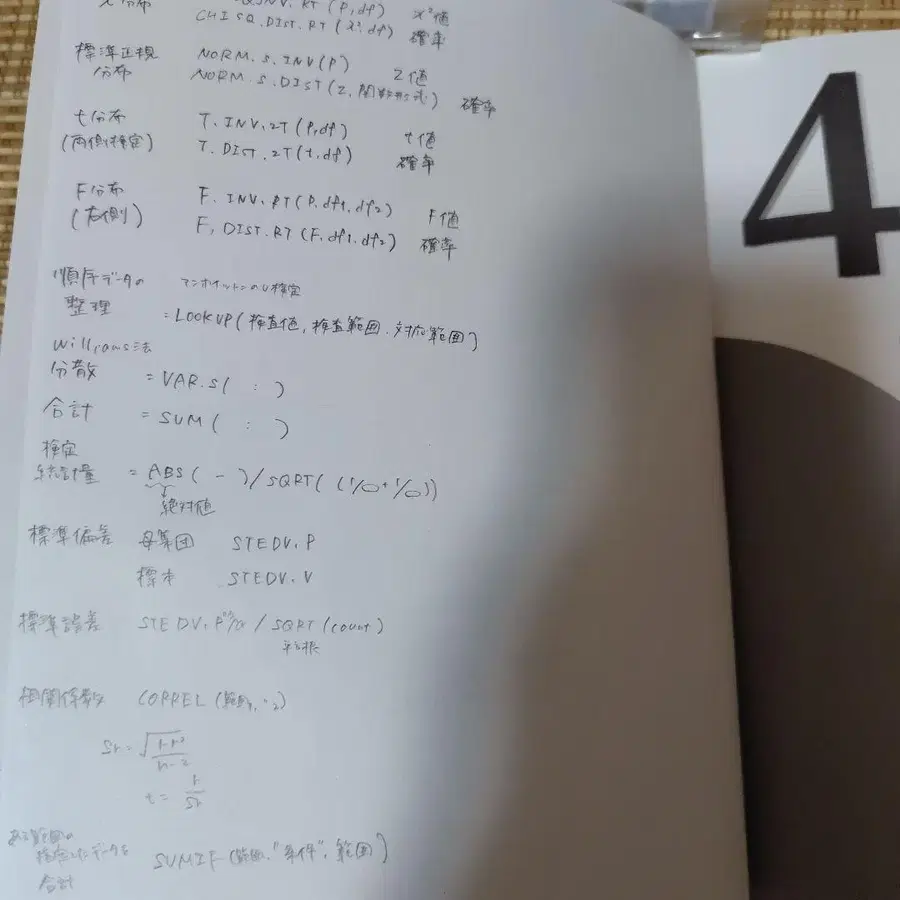 χ²分布 INV.RT(P,df) χ²値
CHISQ.DIST.RT(χ²,df) 確率
標準正規 NORM.S.INV(P) Z値
分布 NORM.S.DIST(Z,関数形式) 確率
t分布 T.INV.2T(P,df) t値
(両側検定) T.DIST.2T(t,df) 確率
F分布 F.INV.RT(P,df1,df2) F値
(右側) F.DIST.RT(F,df1,df2) 確率
順序データの マンホイットニのU検定
整理 =LOOKUP(検査値,検査範囲,対応範囲)
Williams法
分散 =VAR.S( : )
合計 =SUM( : )
検定
統計量 =ABS( - )/SQRT( (1/○+1/○))
絶対値
標準偏差 母集団 STEDV.P
標本 STEDV.V
標準誤差 STEDV.P /SQRT(count)
平方根
相関係数 CORREL(範囲1,〃2)
Sr=√(1-r²/n-2)
t= r/Sr
ある範囲の
検定したデータを SUMIF(範囲,"条件",範囲)
合計
4